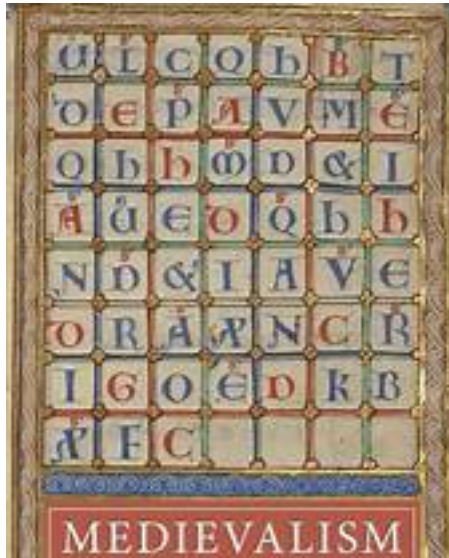 U L C Q h B T
O E P A V M E
Q h h M D & I
A U E O Q h h
N D & I A V E
O R A X N C R
I G O E D K B
X F C
MEDIEVALISM